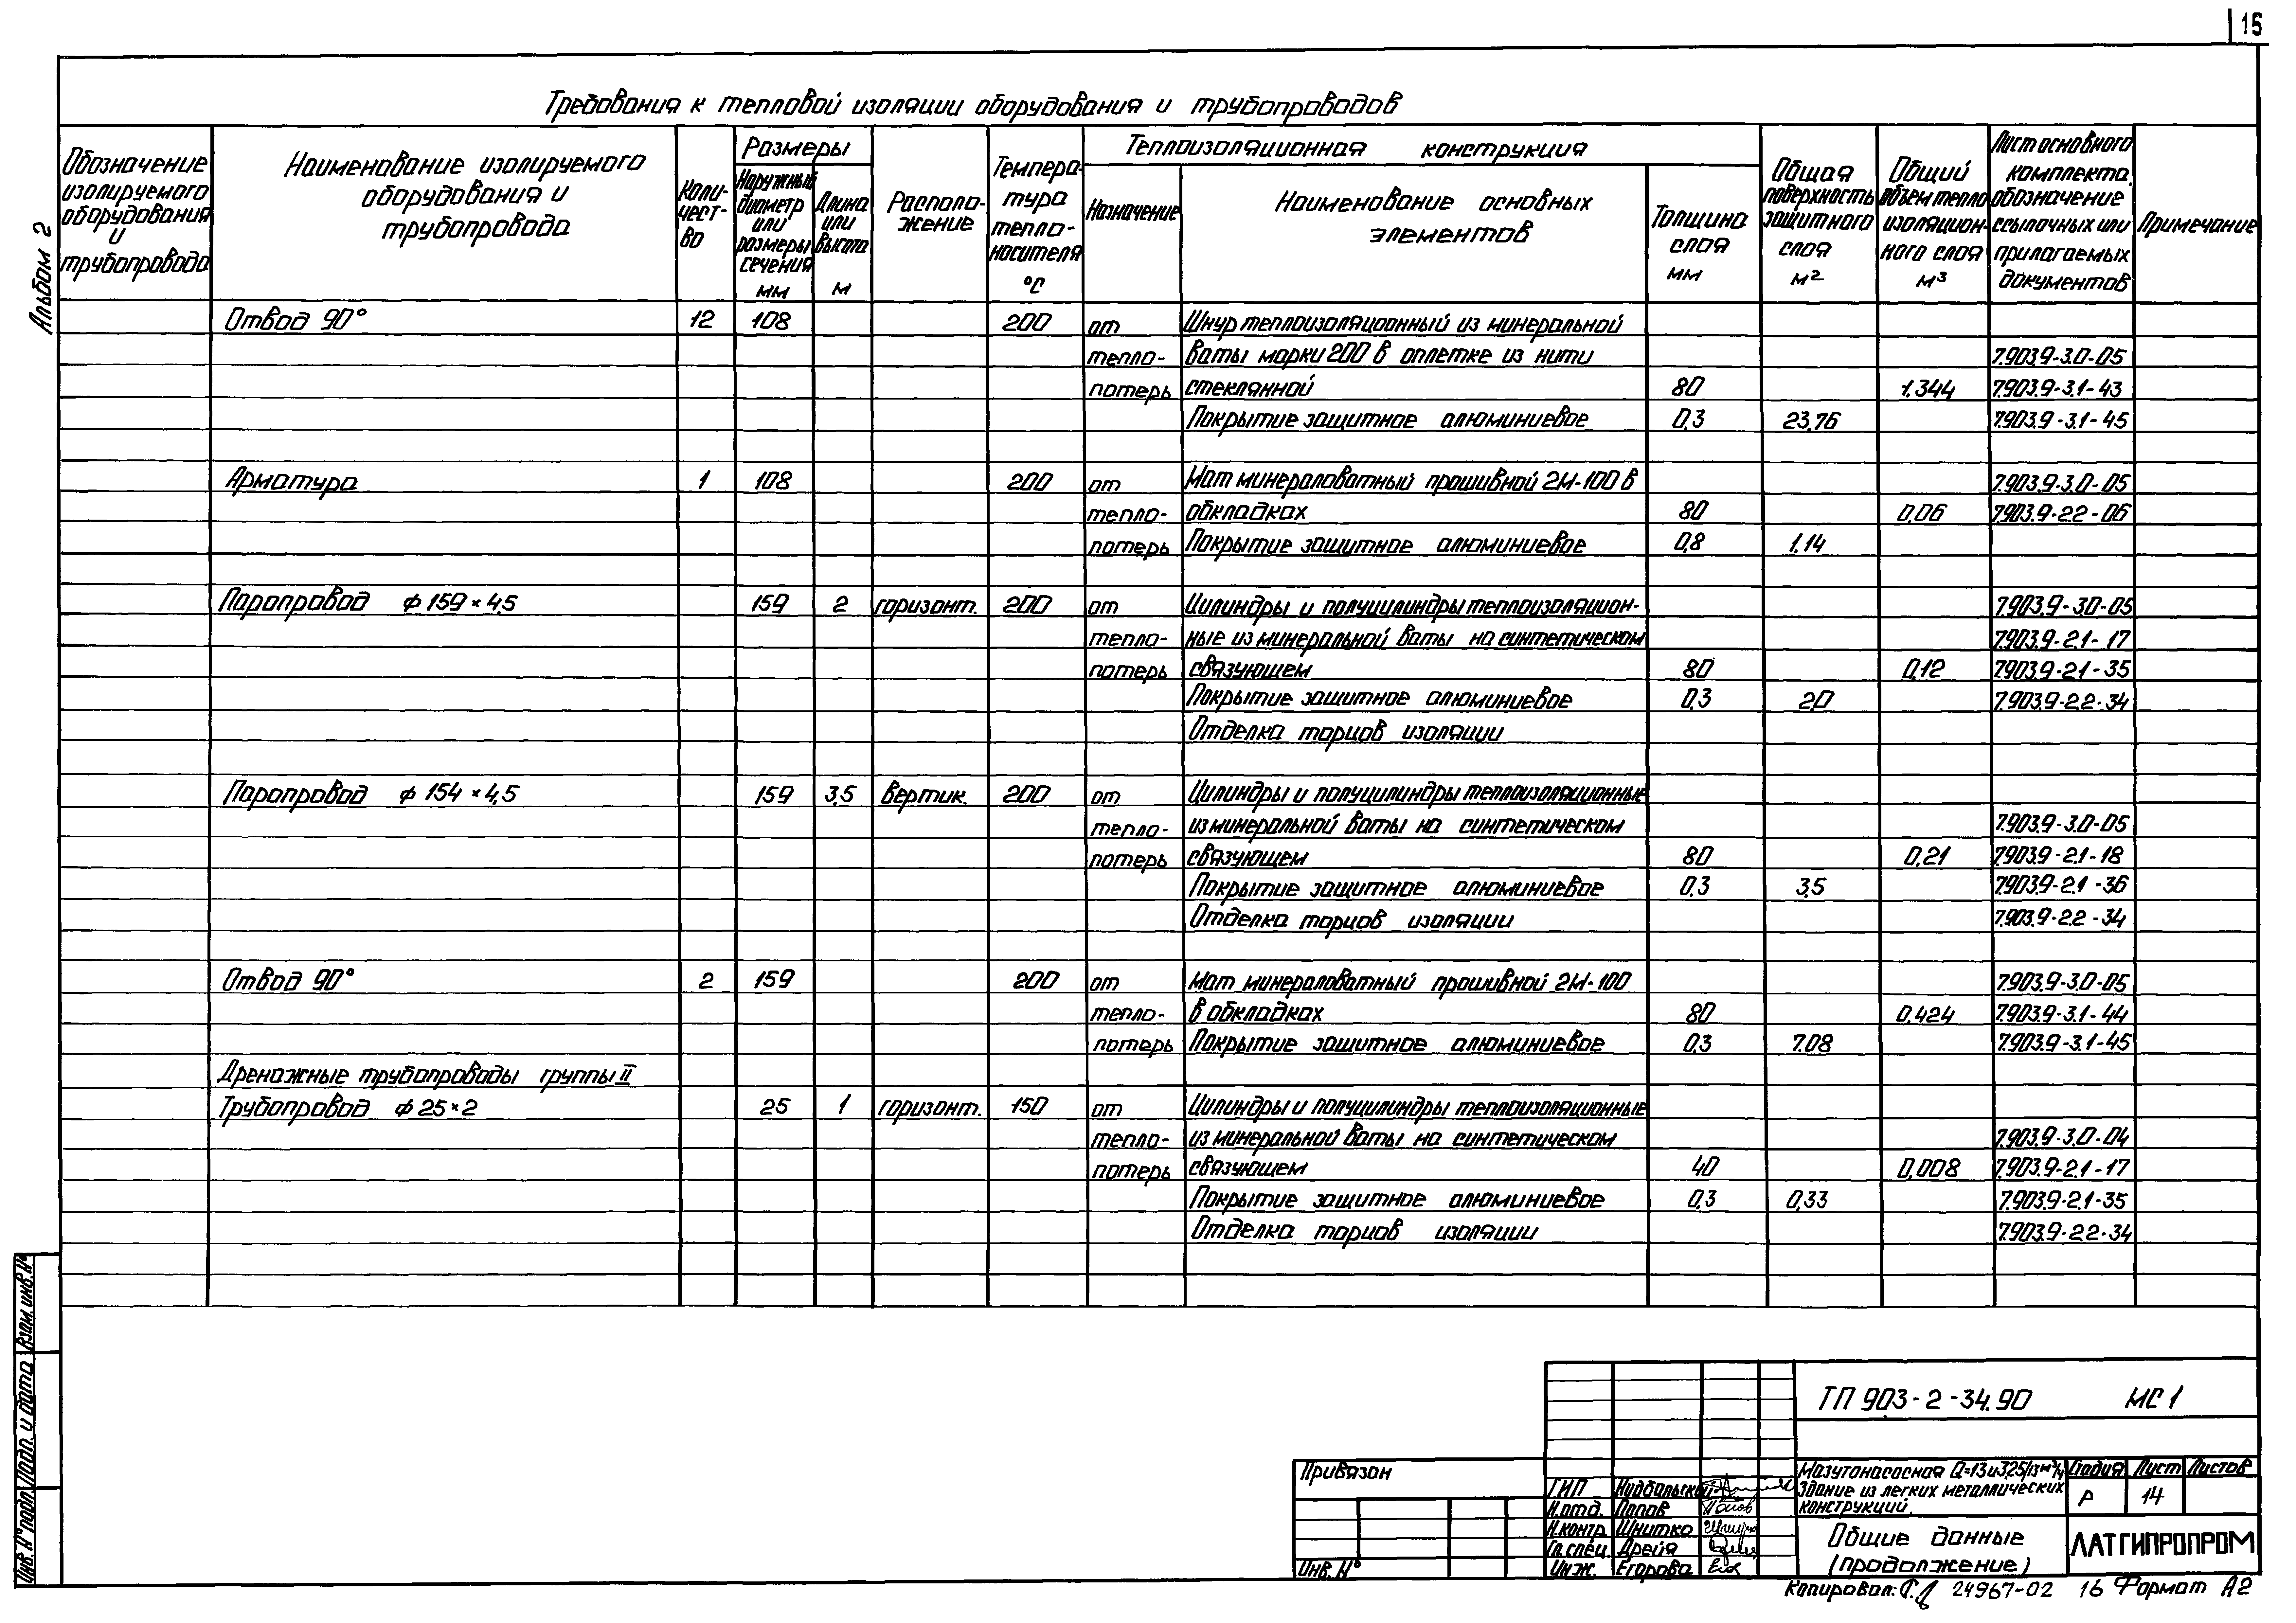 15
Альбом 2
Требования к тепловой изоляции оборудования и трубопроводов
Обозначение изолируемого оборудования и трубопровода
Наименование изолируемого оборудования и трубопровода
Количество
Размеры
Наружный диаметр или размеры сечения мм
Длина или высота м
Расположение
Температура теплоносителя °С
Теплоизоляционная конструкция
Назначение
Наименование основных элементов
Толщина слоя мм
Общая поверхность защитного слоя м²
Общий объем теплоизоляционного слоя м³
Лист основного комплекта, обозначение ссылочных или прилагаемых документов
Примечание
Отвод 90° 12 108 200 от Шнур теплоизоляционный из минеральной
тепло- ваты марки 200 в оплетке из нити 7.903.9-3.0-05
потерь стеклянной 80 1.344 7.903.9-3.1-43
Покрытие защитное алюминиевое 0.3 23,76 7.903.9-3.1-45
Арматура 1 108 200 от Мат минераловатный прошивной 2М-100 в 7.903.9-3.0-05
тепло- обкладках 80 0,06 7.903.9-2.2-06
потерь Покрытие защитное алюминиевое 0,8 1.14
Паропровод ф 159×4,5 159 2 горизонт. 200 от Цилиндры и полуцилиндры теплоизоляцион- 7.903.9-3.0-05
тепло- ные из минеральной ваты на синтетическом 7.903.9-2.1-17
потерь связующем 80 0,12 7.903.9-2.1-35
Покрытие защитное алюминиевое 0,3 2,0 7.903.9-2.2-34
Отделка торцов изоляции
Паропровод ф 154×4,5 159 3,5 вертик. 200 от Цилиндры и полуцилиндры теплоизоляционные
тепло- из минеральной ваты на синтетическом 7.903.9-3.0-05
потерь связующем 80 0,21 7.903.9-2.1-18
Покрытие защитное алюминиевое 0,3 3,5 7.903.9-2.1-36
Отделка торцов изоляции 7.903.9-2.2-34
Отвод 90° 2 159 200 от мат минераловатный прошивной 2М-100 7.903.9-3.0-05
тепло- в обкладках 80 0,424 7.903.9-3.1-44
потерь Покрытие защитное алюминиевое 0,3 7.08 7.903.9-3.1-45
Дренажные трубопроводы группы II
Трубопровод ф 25×2 25 1 горизонт. 150 от Цилиндры и полуцилиндры теплоизоляционные
тепло- из минеральной ваты на синтетическом 7.903.9-3.0-04
потерь связующем 40 0,008 7.903.9-2.1-17
Покрытие защитное алюминиевое 0,3 0,33 7.903.9-2.1-35
Отделка торцов изоляции 7.903.9-2.2-34
Взам. инв. №
Подп. и дата
Инв. № подл.
ТП 903-2-34.90 МС1
Привязан
Инв. №
ГИП
Н.отд. Попов
Н.контр. Шнитко
Гл.спец. Дрейя
Инж. Егорова
Мазутонасосная Q=13 и 3,25/13 м³/ч
Здание из легких металлических
конструкций.
Стадия Лист Листов
Р 14
Общие данные
(продолжение)
ЛАТГИПРОПРОМ
Копировал: 24967-02 16 Формат А2